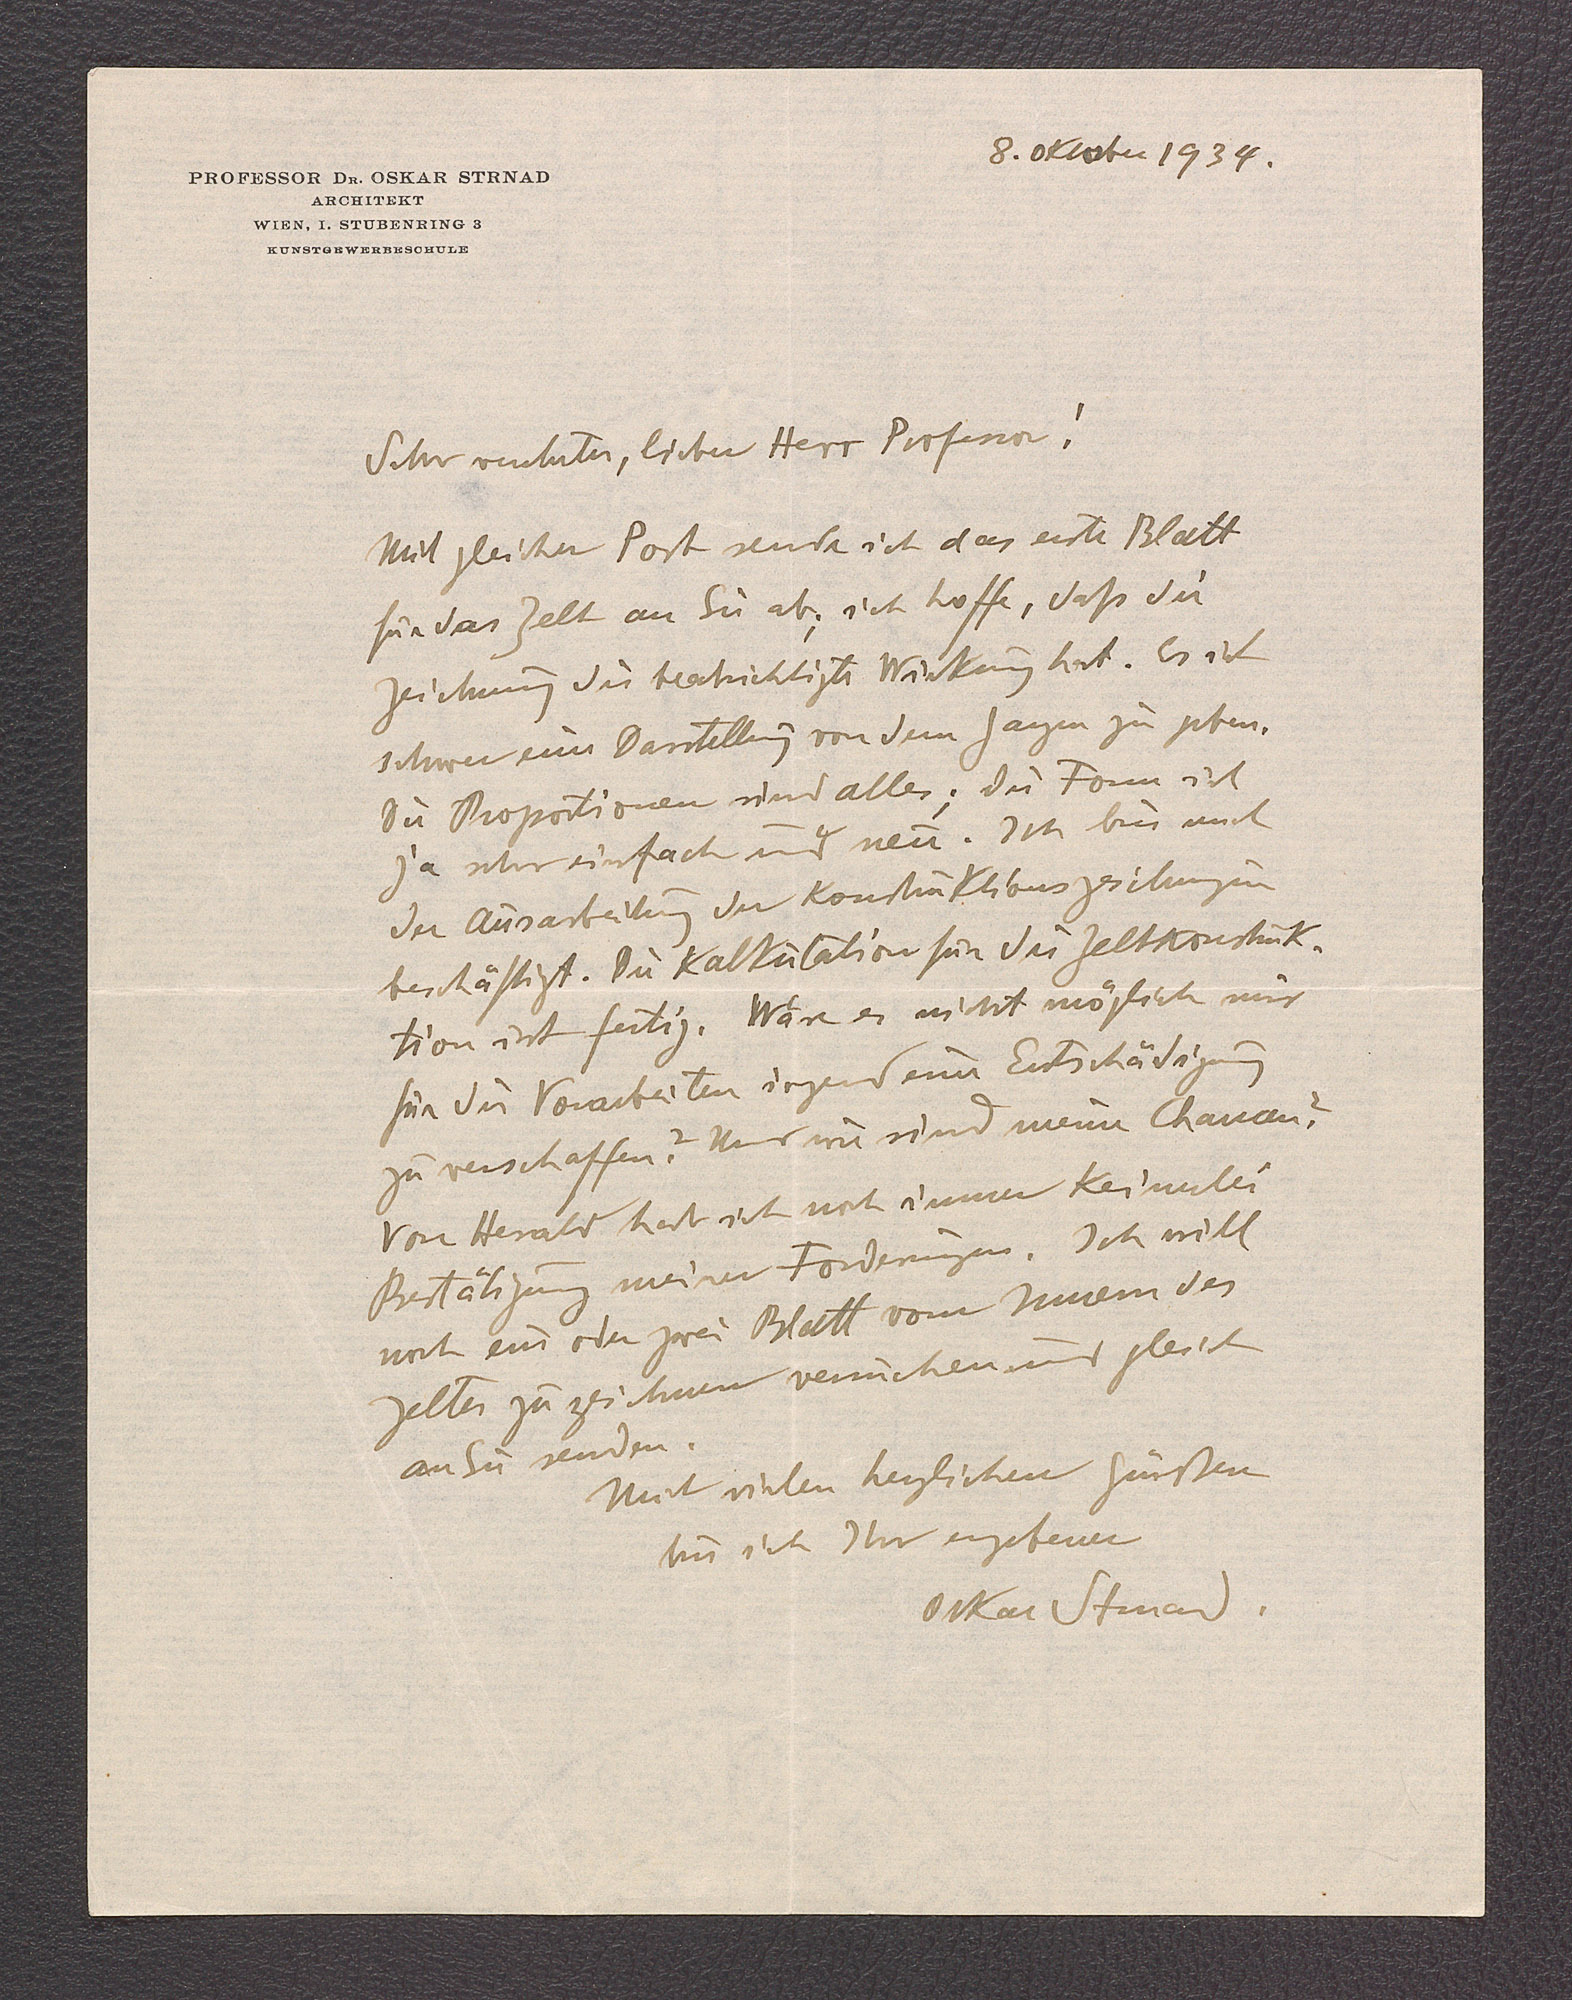 8. Oktober 1934.
PROFESSOR DR. OSKAR STRNAD
ARCHITEKT
WIEN, I. STUBENRING 3
KUNSTGEWERBESCHULE
Sehr verehrter, lieber Herr Professor!
Mit gleicher Post sende ich das erste Blatt
für das Zelt an Sie ab; ich hoffe, daß die
Zeichnung die beabsichtigte Wirkung hat. Es ist
schwer eine Darstellung von dem Ganzen zu geben.
Die Proportionen sind alles; die Form ist
ja sehr einfach und neu. Ich bin mit
der Ausarbeitung der Konstruktionszeichnungen
beschäftigt. Die Kalkulation für die Zeltkonstruk-
tion ist fertig. Wäre es nicht möglich mir
für die Vorarbeiten irgend eine Entschädigung
zu verschaffen? Und wie sind meine Chancen?
Von Herald hab ich noch immer keinerlei
Bestätigung meiner Forderungen. Ich will
noch ein oder zwei Blatt vom Innern des
Zeltes zu zeichnen versuchen und gleich
an Sie senden.
Mit vielen herzlichen Grüßen
bin ich Ihr ergebener
Oskar Strnad.